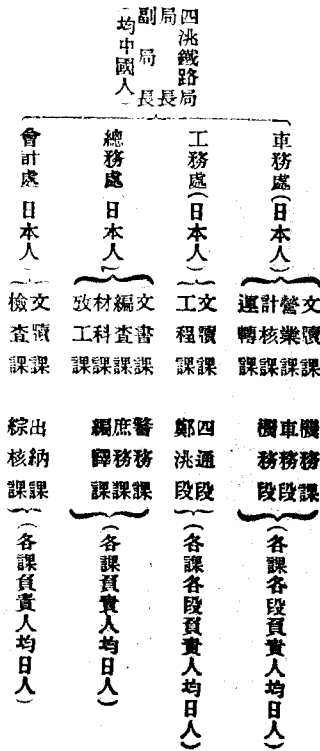 四洮鐵路局
局長
副局長
(均中國人)
車務處(日本人)
文牘課
營業課
計核課
運轉課
機務課
車務段
機務段
(各課各段負責人均日人)
工務處(日本人)
文牘課
工程課
四通段
鄭洮段
(各課各段負責人均日人)
總務處(日本人)
文書課
編查課
材料課
攷工課
警務課
庶務課
編譯課
(各課負責人均日人)
會計處(日本人)
文牘課
檢查課
出納課
綜核課
(各課負責人均日人)